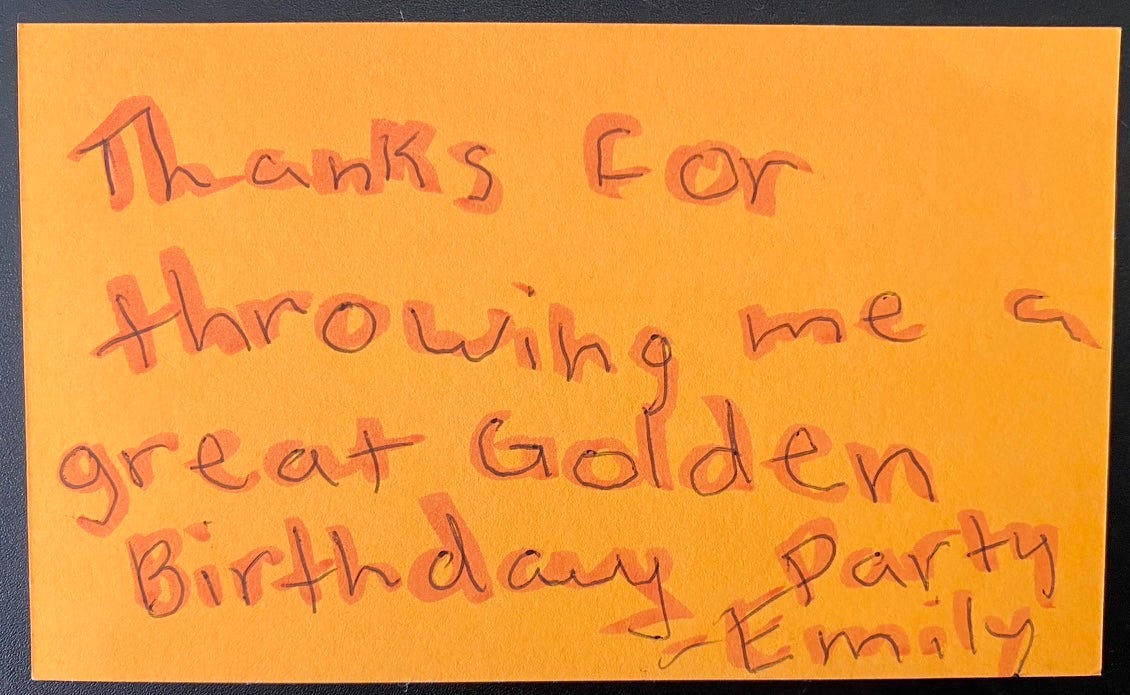 Thanks for
throwing me a
great Golden
Birthday Party
-Emily